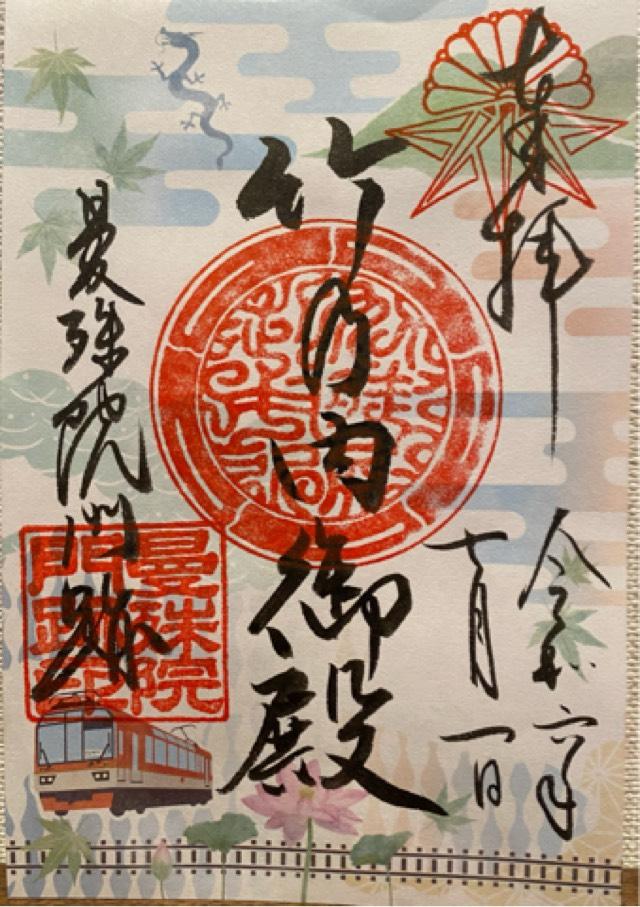 奉拝
令和六年
七月一日
竹の内御殿
曼殊院門跡
曼殊院
門跡印